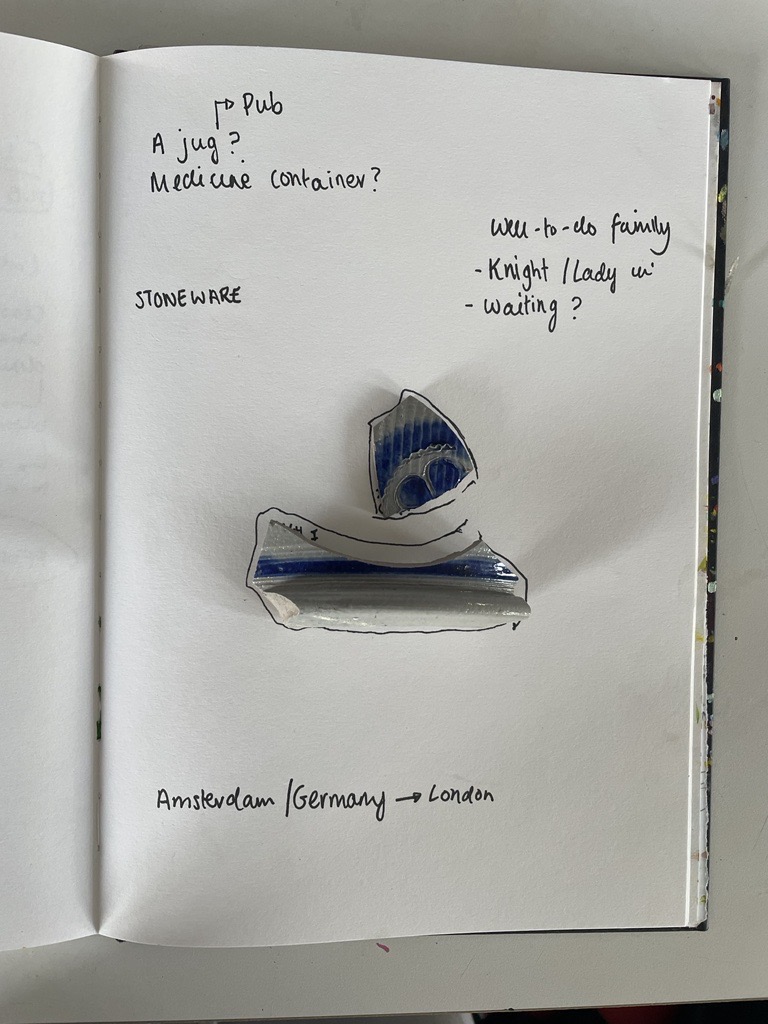 Pub
A jug?
Medicine container?
Well-to-do family
- Knight / Lady in
- waiting ?
STONEWARE
Amsterdam / Germany → London